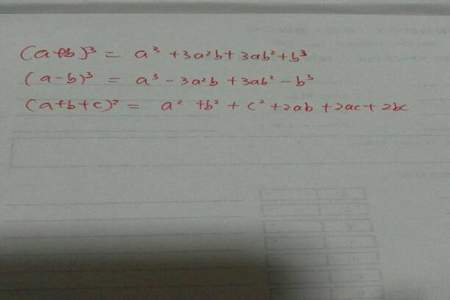 (a+b)³ = a³ + 3a²b + 3ab² + b³
(a-b)³ = a³ - 3a²b + 3ab² - b³
(a+b+c)² = a² + b² + c² + 2ab + 2ac + 2bc